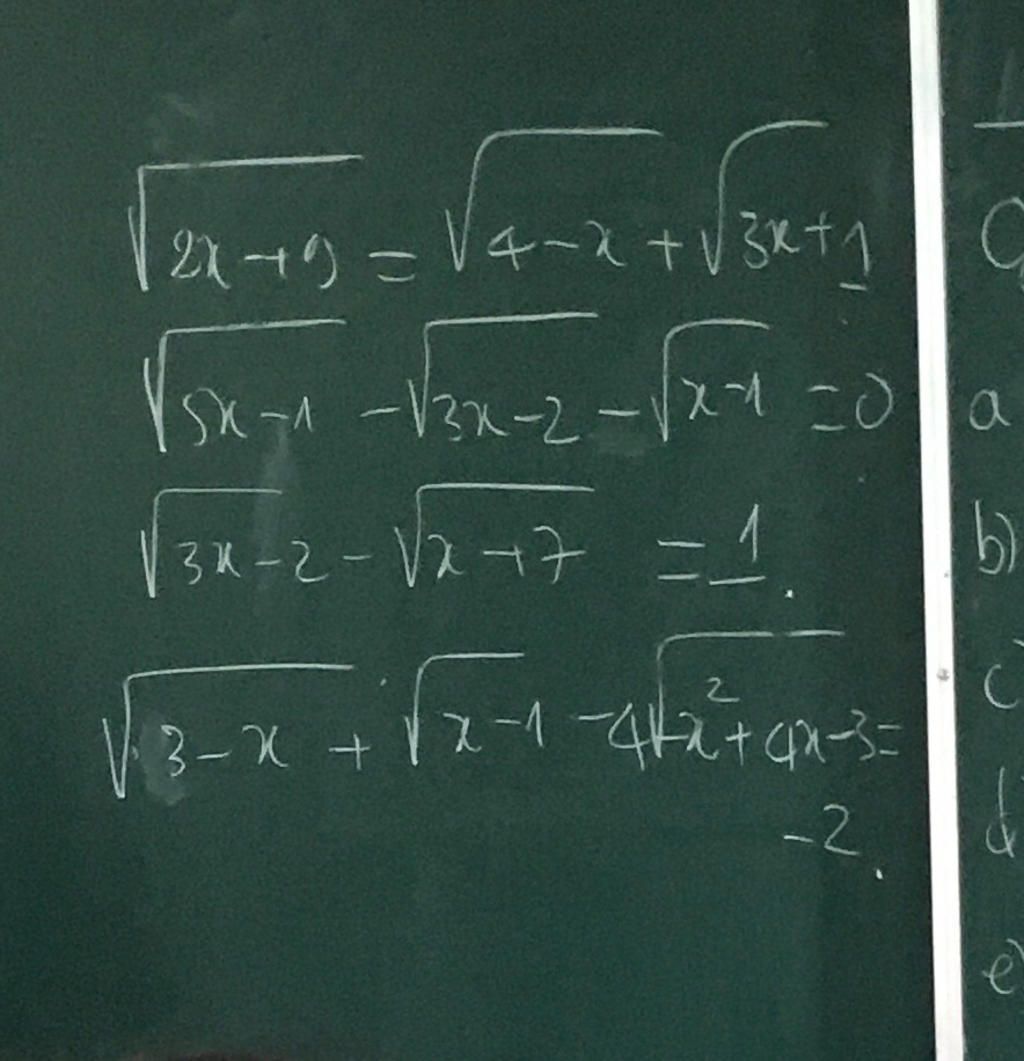 √(2x+9) = √(4-x) + √(3x+1)
√(5x-1) - √(3x-2) - √(x-1) = 0
√(3x-2) - √(x+7) = 1.
√(3-x) + √(x-1) - 4√(-x²+4x-3) =
-2.
a
b)
c)
d
e)